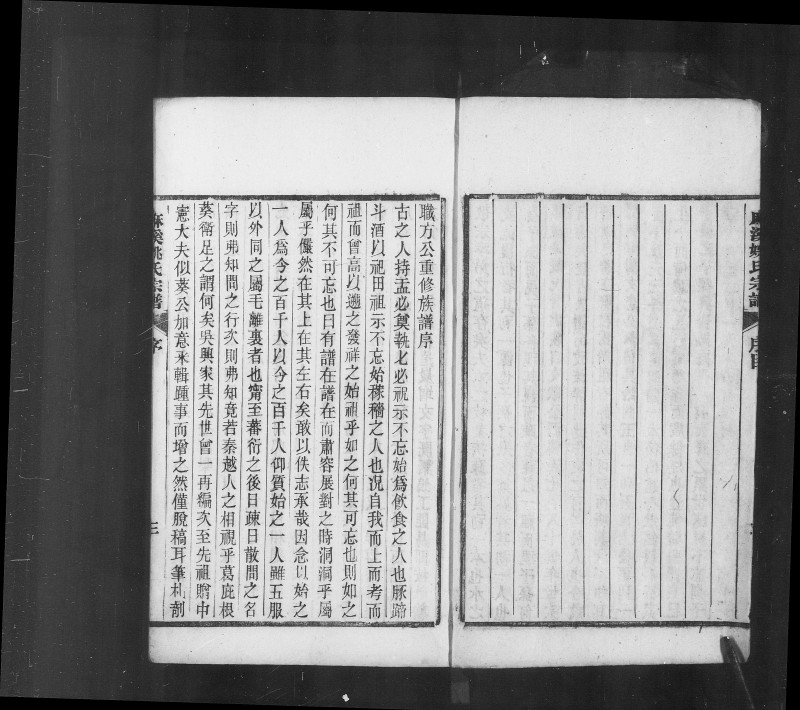 職方公重修族譜序
古之人持盂必奠執匕必祝示不忘始爲飲食之人也豚蹄
斗酒以祀田祖示不忘始稼穡之人也況自我而上而考而
祖而曾高以遡之發祥之始祖乎如之何其可忘也則如之
何其不可忘也曰有譜在譜在而肅容展對之時洞洞乎屬
屬乎儼然在其上在其左右矣敢以佚志承哉因念以始之
一人爲今之百千人以今之百千人仰質始之一人雖五服
以外同之屬毛離裏者也甯至蕃衍之後日疎日散問之名
字則弗知問之行次則弗知竟若秦越人之相視乎葛庇根
葵衛足之謂何矣吳興家其先世曾一再編次至先祖贈中
憲大夫似葵公加意釆輯踵事而增之然僅脫稿耳筆札剞
麻溪姚氏宗譜
序
三